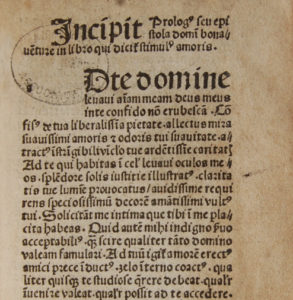 Incipit Prologꝰ seu epi
stola domi bona
uēture in libro qui dicit stimulꝰ amoris.
Dte domine
leuaui aīam meam deus meus
in te confido nō erubescā. Cō
fisꝰ de tua liberalissīa pietate allectus mira
suauissimi amoris et odoris tui suauitate at
tractꝰ īsrīgibiliviclo tue ardētissīe caritatꝭ
Ad te qui habitas ī celꝭ leuaui oculos me
os splēdore solis iusticie illustratꝰ clarita
tis tue lumīe prouocatus auidissime requi
rens speciosissimū decorē amātissimi vultꝰ
tui. Solicitāt me intima que tibi ī me pla
cita habeas. Qui autē mihi indigno fuo
acceptabilꝭ ꝗ̄ scire qualiter tāto domino
valeam famulari. Ad tuū igit amorē erect
amici prece īductꝰ zelo īterno coactꝰ qua
liter quisꝗ te studiose querere debeat qualit
inuenire valeat qualit possit ad te accedere.